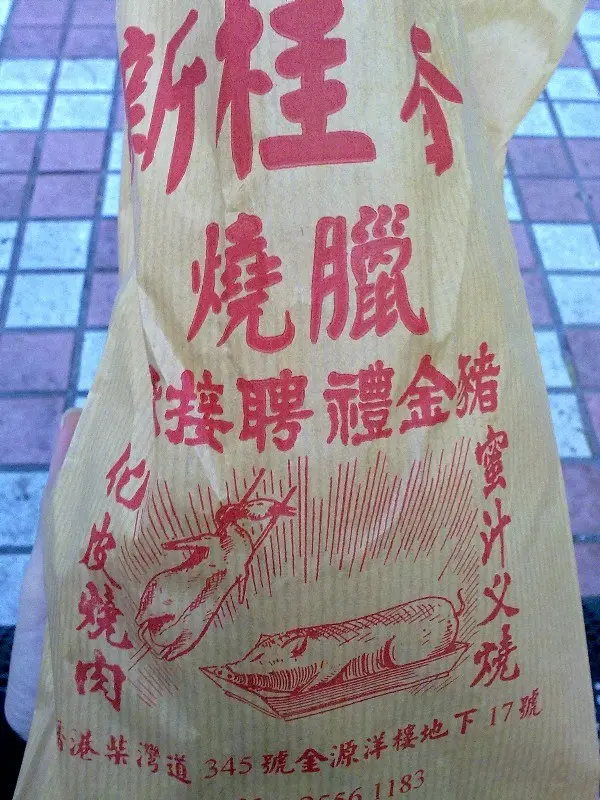 新桂香
燒臘
接聘禮金豬
化皮燒肉
蜜汁义燒
香港柴灣道 345 號金源洋樓地下 17 號
2556 1183